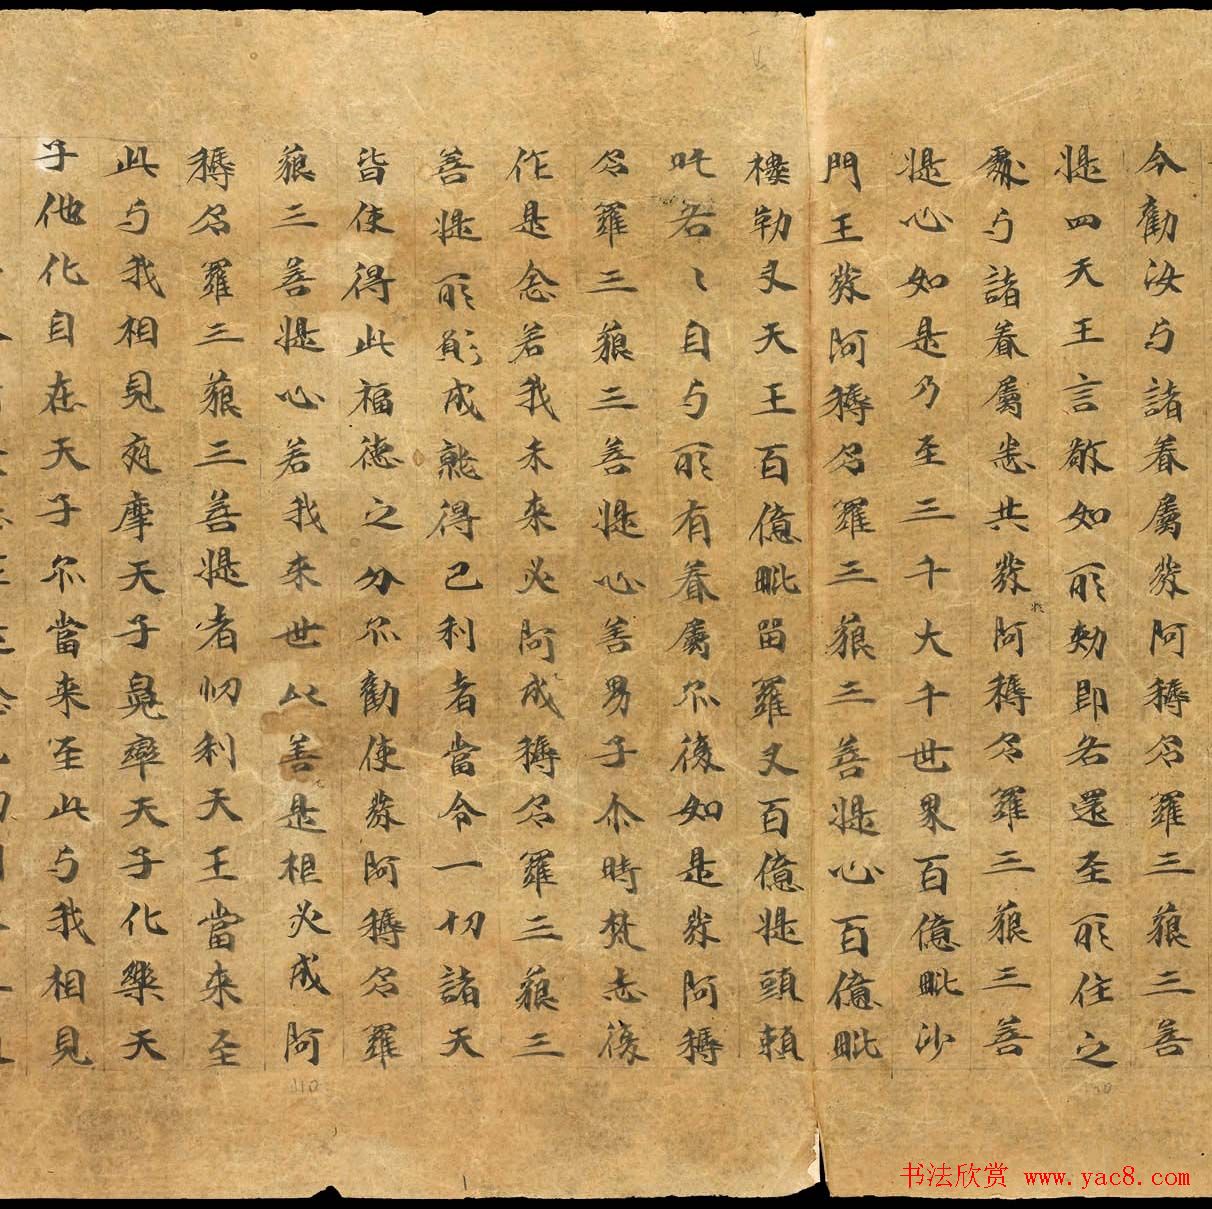 今勸汝与諸眷屬發阿耨多羅三藐三菩
提四天王言敬如所勑即各還至所住之
處与諸眷屬悉共發阿耨多羅三藐三菩
提心如是乃至三千大千世界百億毗沙
門王發阿耨多羅三藐三菩提心百億毗
樓勒叉天王百億毗留羅叉百億提頭賴
吒各々自与所有眷屬不復如是發阿耨
多羅三藐三菩提心善男子尒時梵志復
作是念若我未来必阿成耨多羅三藐三
菩提所願成就得己利者當令一切諸天
皆使得此福德之分亦勸使發阿耨多羅
藐三菩提心若我来世以善是相必成阿
耨多羅三藐三菩提者忉利天王當来至
此与我相見夜摩天子兜率天子化樂天
子他化自在天子亦當来至此与我相見
书法欣赏 www.yac8.com